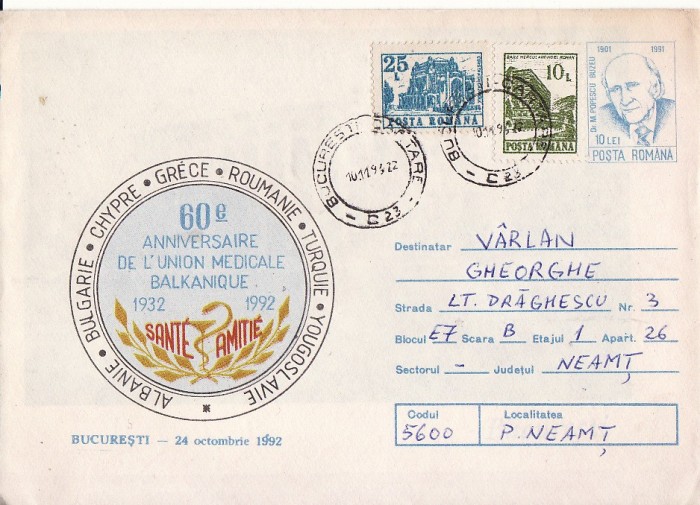 25 L
POSTA ROMANA
10 L
POSTA ROMANA
1901 1991
Dr. M. POPESCU BUZEU
10 LEI
POSTA ROMANA
BUCUREȘTI CARTARE
10.11.93.22
C 23
10.11.93.22
C 23
ALBANIE • BULGARIE • CHYPRE • GRÉCE • ROUMANIE • TURQUIE • YOUGOSLAVIE
60e
ANNIVERSAIRE
DE L'UNION MEDICALE
BALKANIQUE
1932 1992
SANTÉ AMITIÉ
BUCUREȘTI — 24 octombrie 1992
Destinatar VÂRLAN
GHEORGHE
Strada LT. DRĂGHESCU Nr. 3
Blocul E7 Scara B Etajul 1 Apart. 26
Sectorul - Județul NEAMȚ
Codul Localitatea
5600 P. NEAMȚ